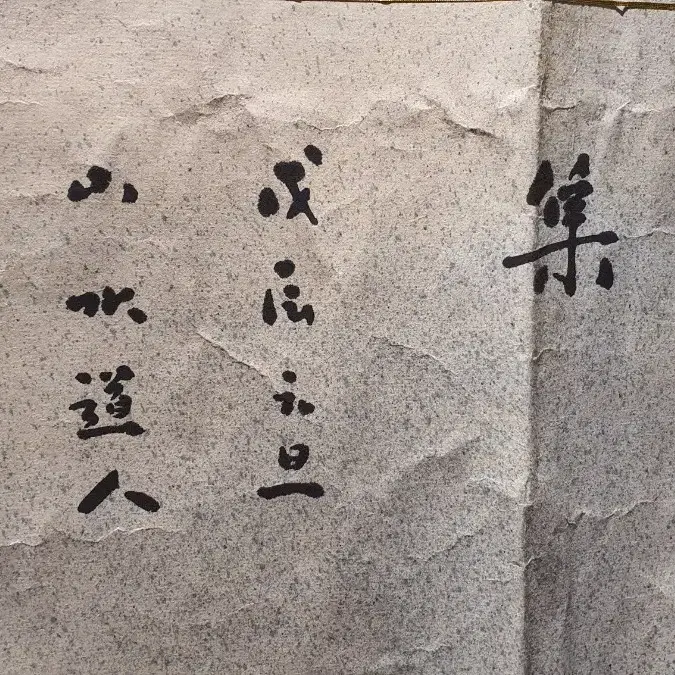 集
戊辰元旦
山水道人